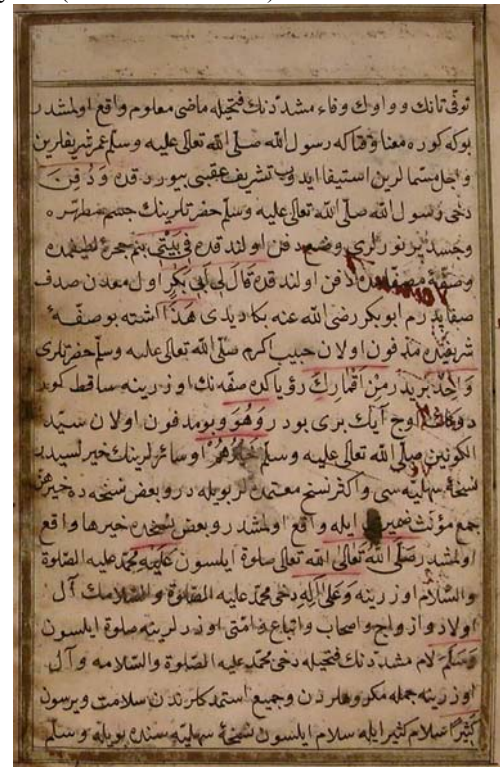 توفى تانك و واوك وفاء مشدّدنك فتحيله ماضى معلوم واقع اولمشدر
بوكه كوره معنا وقتاكه رسول الله صلى الله تعالى عليه وسلم عمر شريفلرين
و اجل مسمالرين استيفا ايدوب تشريف عقبى بيوررقده وَدُفِنَ
دخى رسول الله صلى الله تعالى عليه وسلم حضرتلرينك جسم مطهّره
وجسد پر نورلرى وضع و دفن اولندقده فى بَيْتِى بنم حجرهٔ لطيفمده
وصفّهٔ دفن اولندقده قَالَ لِى اَبِى بَكْرٍ اول معدن صدف
صفا پدرم ابوبكر رضى الله عنه بكا ديدى هٰذَا اشته بو صفّهٔ
شريفده مدفون اولان حبيب اكرم صلى الله تعالى عليه وسلم حضرتلرى
وَاحِدٌ بريدر مِنْ اَقْمَارِكَ رؤياكده صفّه نك اوزرينه ساقط كوردوككك
اوج آيك برى بودر وَهُوَ وبو مدفون اولان سيّد
الكونين صلى الله تعالى عليه وسلم خَيْرُهُمْ اوسائرلرينك خيرلسيدر
نسخهٔ سهليّه سى و اكثر نسخ معتمدلر بويله در و بعض نسخه ده خيرهنّ
جمع مؤنث ضميرى ايله واقع اولمشدر و بعض نسخده خيرها واقع
اولمشدر صَلَّى اللهُ تَعَالَى الله تعالى صلوة ايلسون عَلَيْهِ محمد عليه الصلوة
والسّلام اوزرينه وَعَلَى اٰلِهِ دخى محمد عليه الصّلوة والسّلامك آل
اولاد و ازواج و اصحاب و اتباع و امّتى اوزرلرينه صلوة ايلسون
وَسَلَّمَ لام مشدّدنك فتحيله دخى محمد عليه الصّلوة والسّلامه و آل
اوزرينه جمله مكروهلردن وجميع كدرلردن سلامت ويرسون
كَثِيرًا سلام كثير ايله سلام ايلسون نسخهٔ سهليّه سنده بويله وسلّم